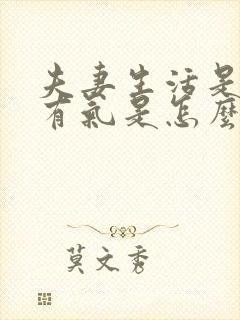 夫妻生活是
有氣是怎麼
莫文秀